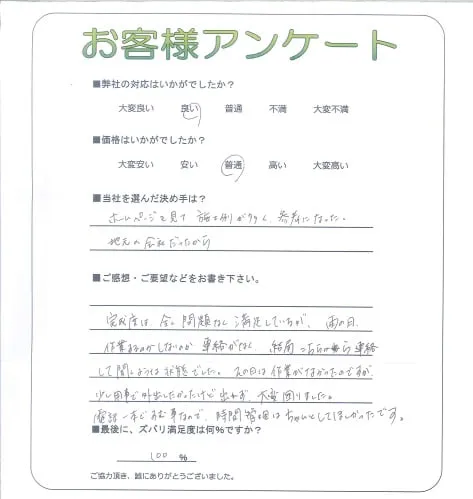 お客様アンケート
■弊社の対応はいかがでしたか？
大変良い 良い 普通 不満 大変不満
■価格はいかがでしたか？
大変安い 安い 普通 高い 大変高い
■当社を選んだ決め手は？
ホームページを見て 施工例が多く、参考になった。
地元の会社だったから
■ご感想・ご要望などをお書き下さい。
完成度は、全く問題なく満足していますが、雨の日、
作業するのかしないのか 連絡がなく、結局こちらから連絡
して聞くような状態でした。その日は作業がなかったのですが、
少し用事で外出したかったけど出れず、大変困りました。
電話一本で済む事なので、時間管理はちゃんとしてほしかったです。
■最後に、ズバリ満足度は何％ですか？
100 %
ご協力頂き、誠にありがとうございました。